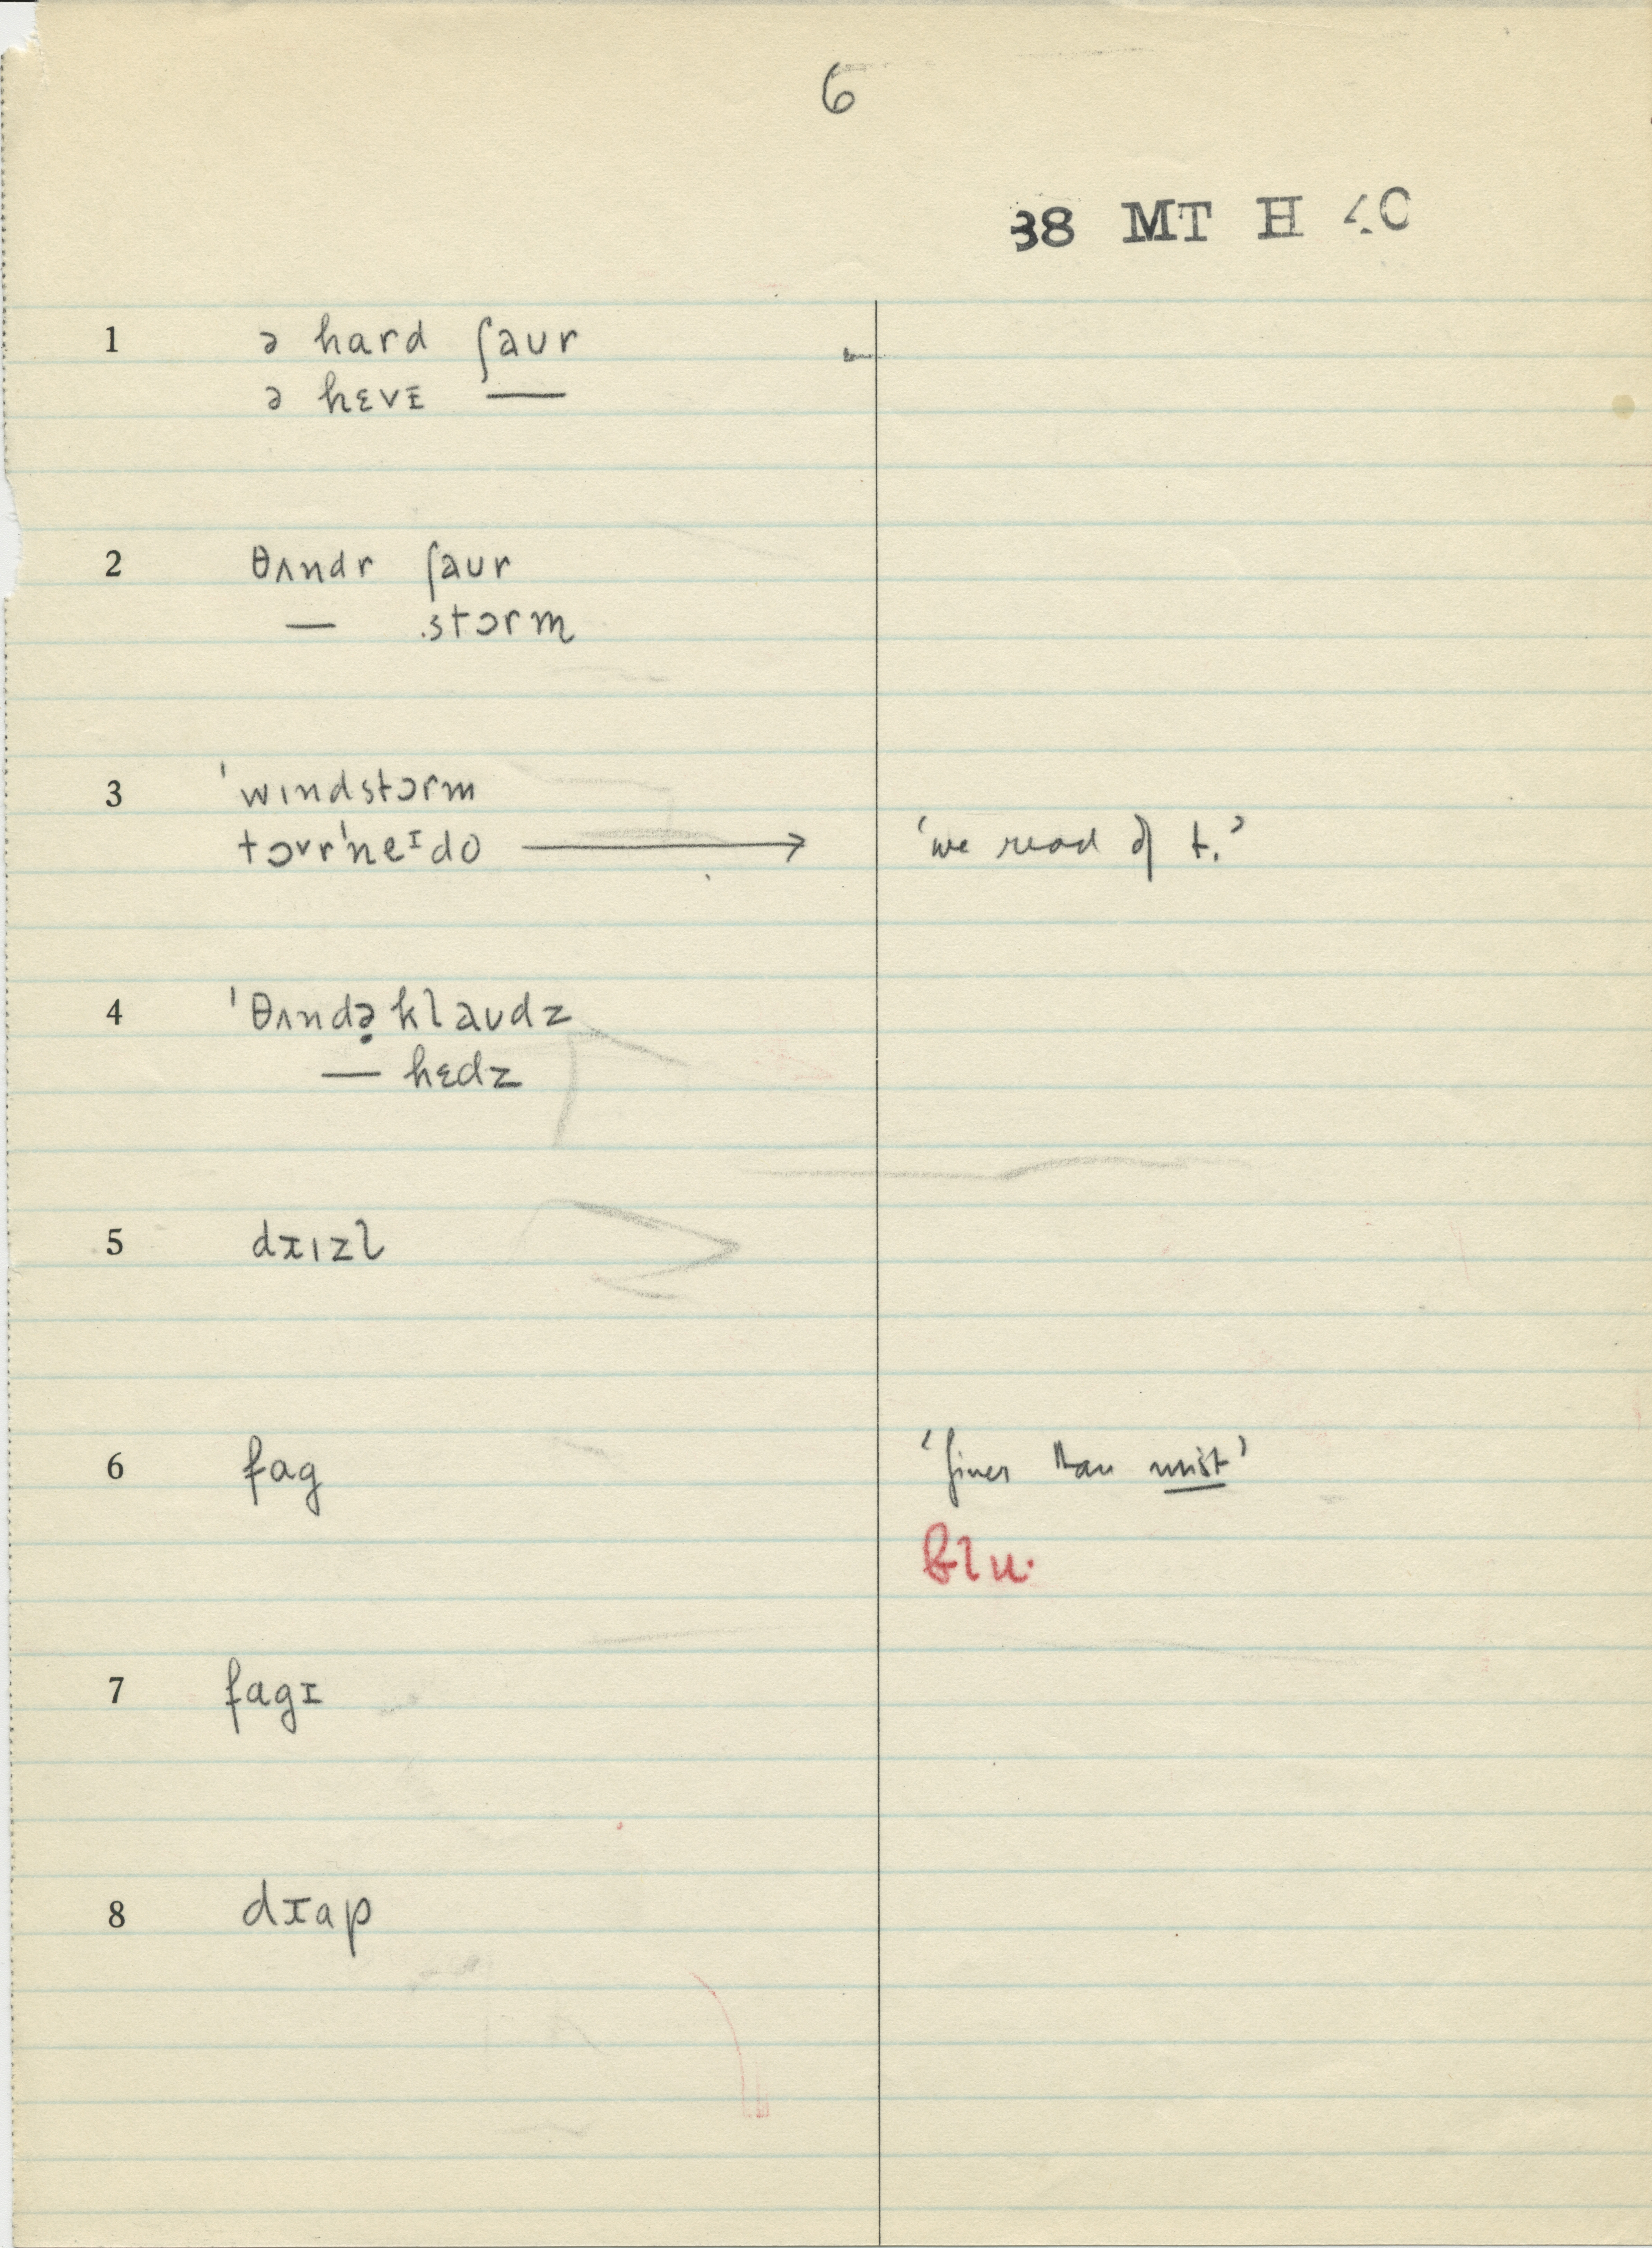 6
38 MT H 40
1 ə hard ʃaʊr
ə hɛvɪ —
2 θʌndr ʃaʊr
— stɔrm
3 ˈwɪndstɔrm
tɔrˈneɪdo → ‘we read of t.’
4 ˈθʌndə̣klaʊdz
— hɛdz
5 dɪzl
6 fag ‘finer than mist’
Blu.
7 fagɪ
8 dɪap